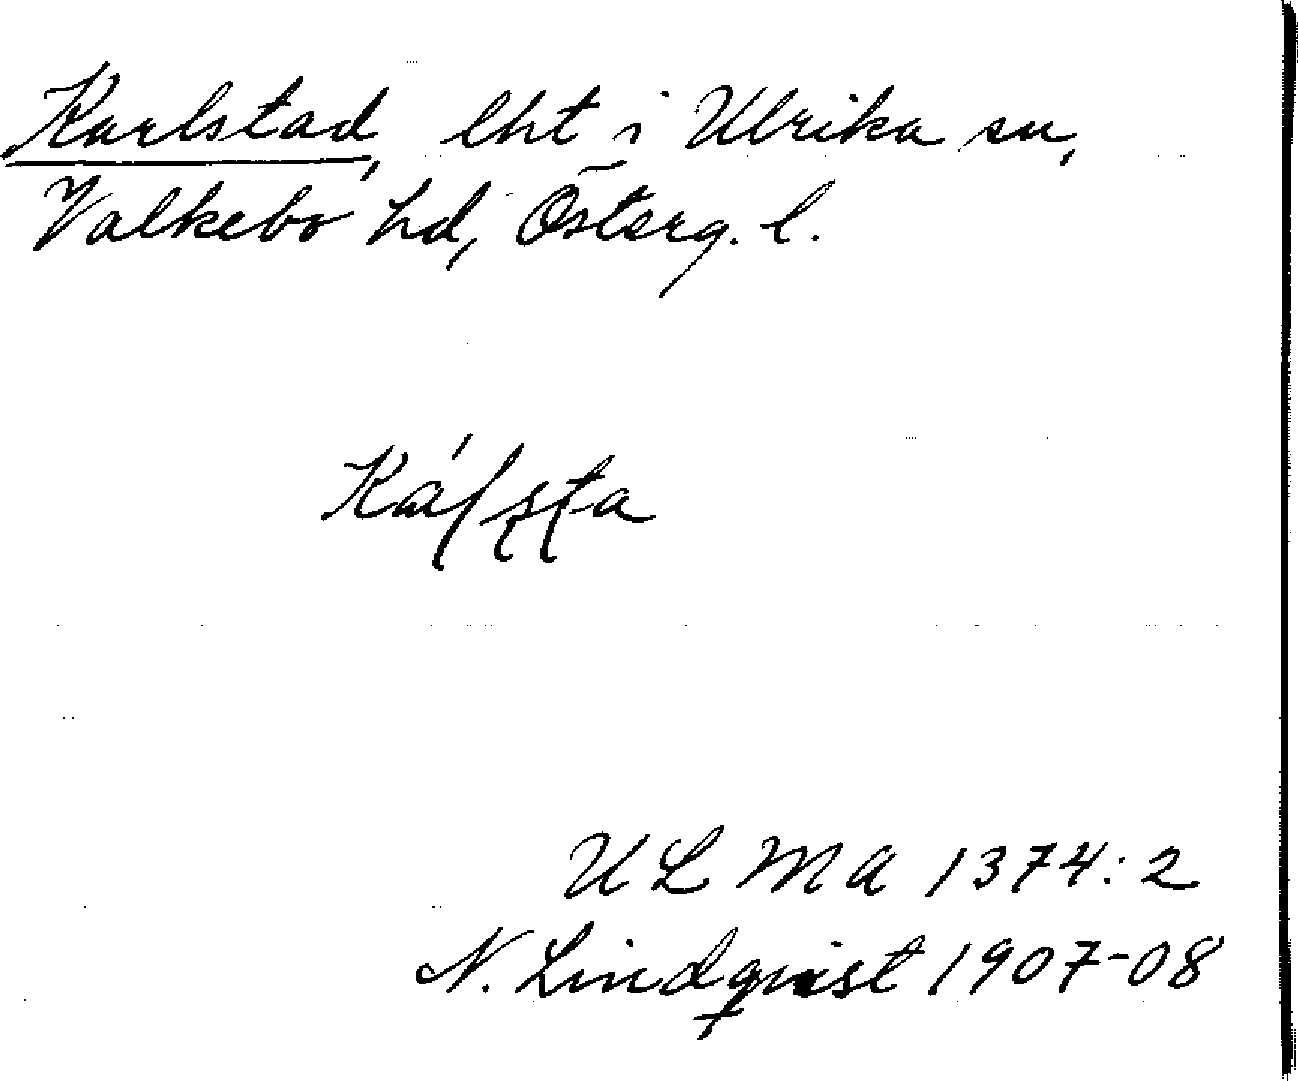 Karlstad, lht i Ulrika sn,
Valkebo hd, Österg. l.
Ká
ULMA 1374:2
N. Lindqvist 1907-08